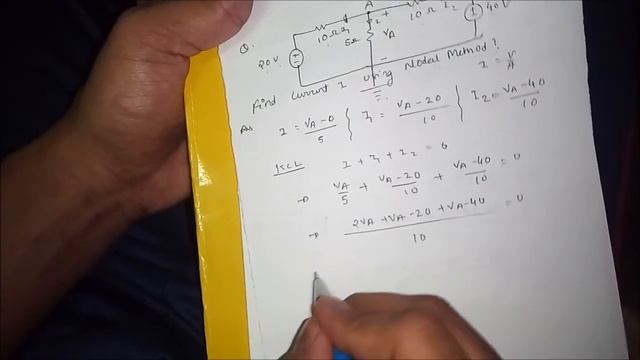 A
Q.
10Ω I₁
I
+
10Ω I₂
40V
5Ω
VA
20V
-
Find Current I using Nodal Method?
I = V/R
Ans I = VA-0/5 { I₁ = VA-20/10 { I₂ = VA-40/10
KCL I + I₁ + I₂ = 0
→ VA/5 + VA-20/10 + VA-40/10 = 0
→ 2VA + VA-20 + VA-40/10 = 0